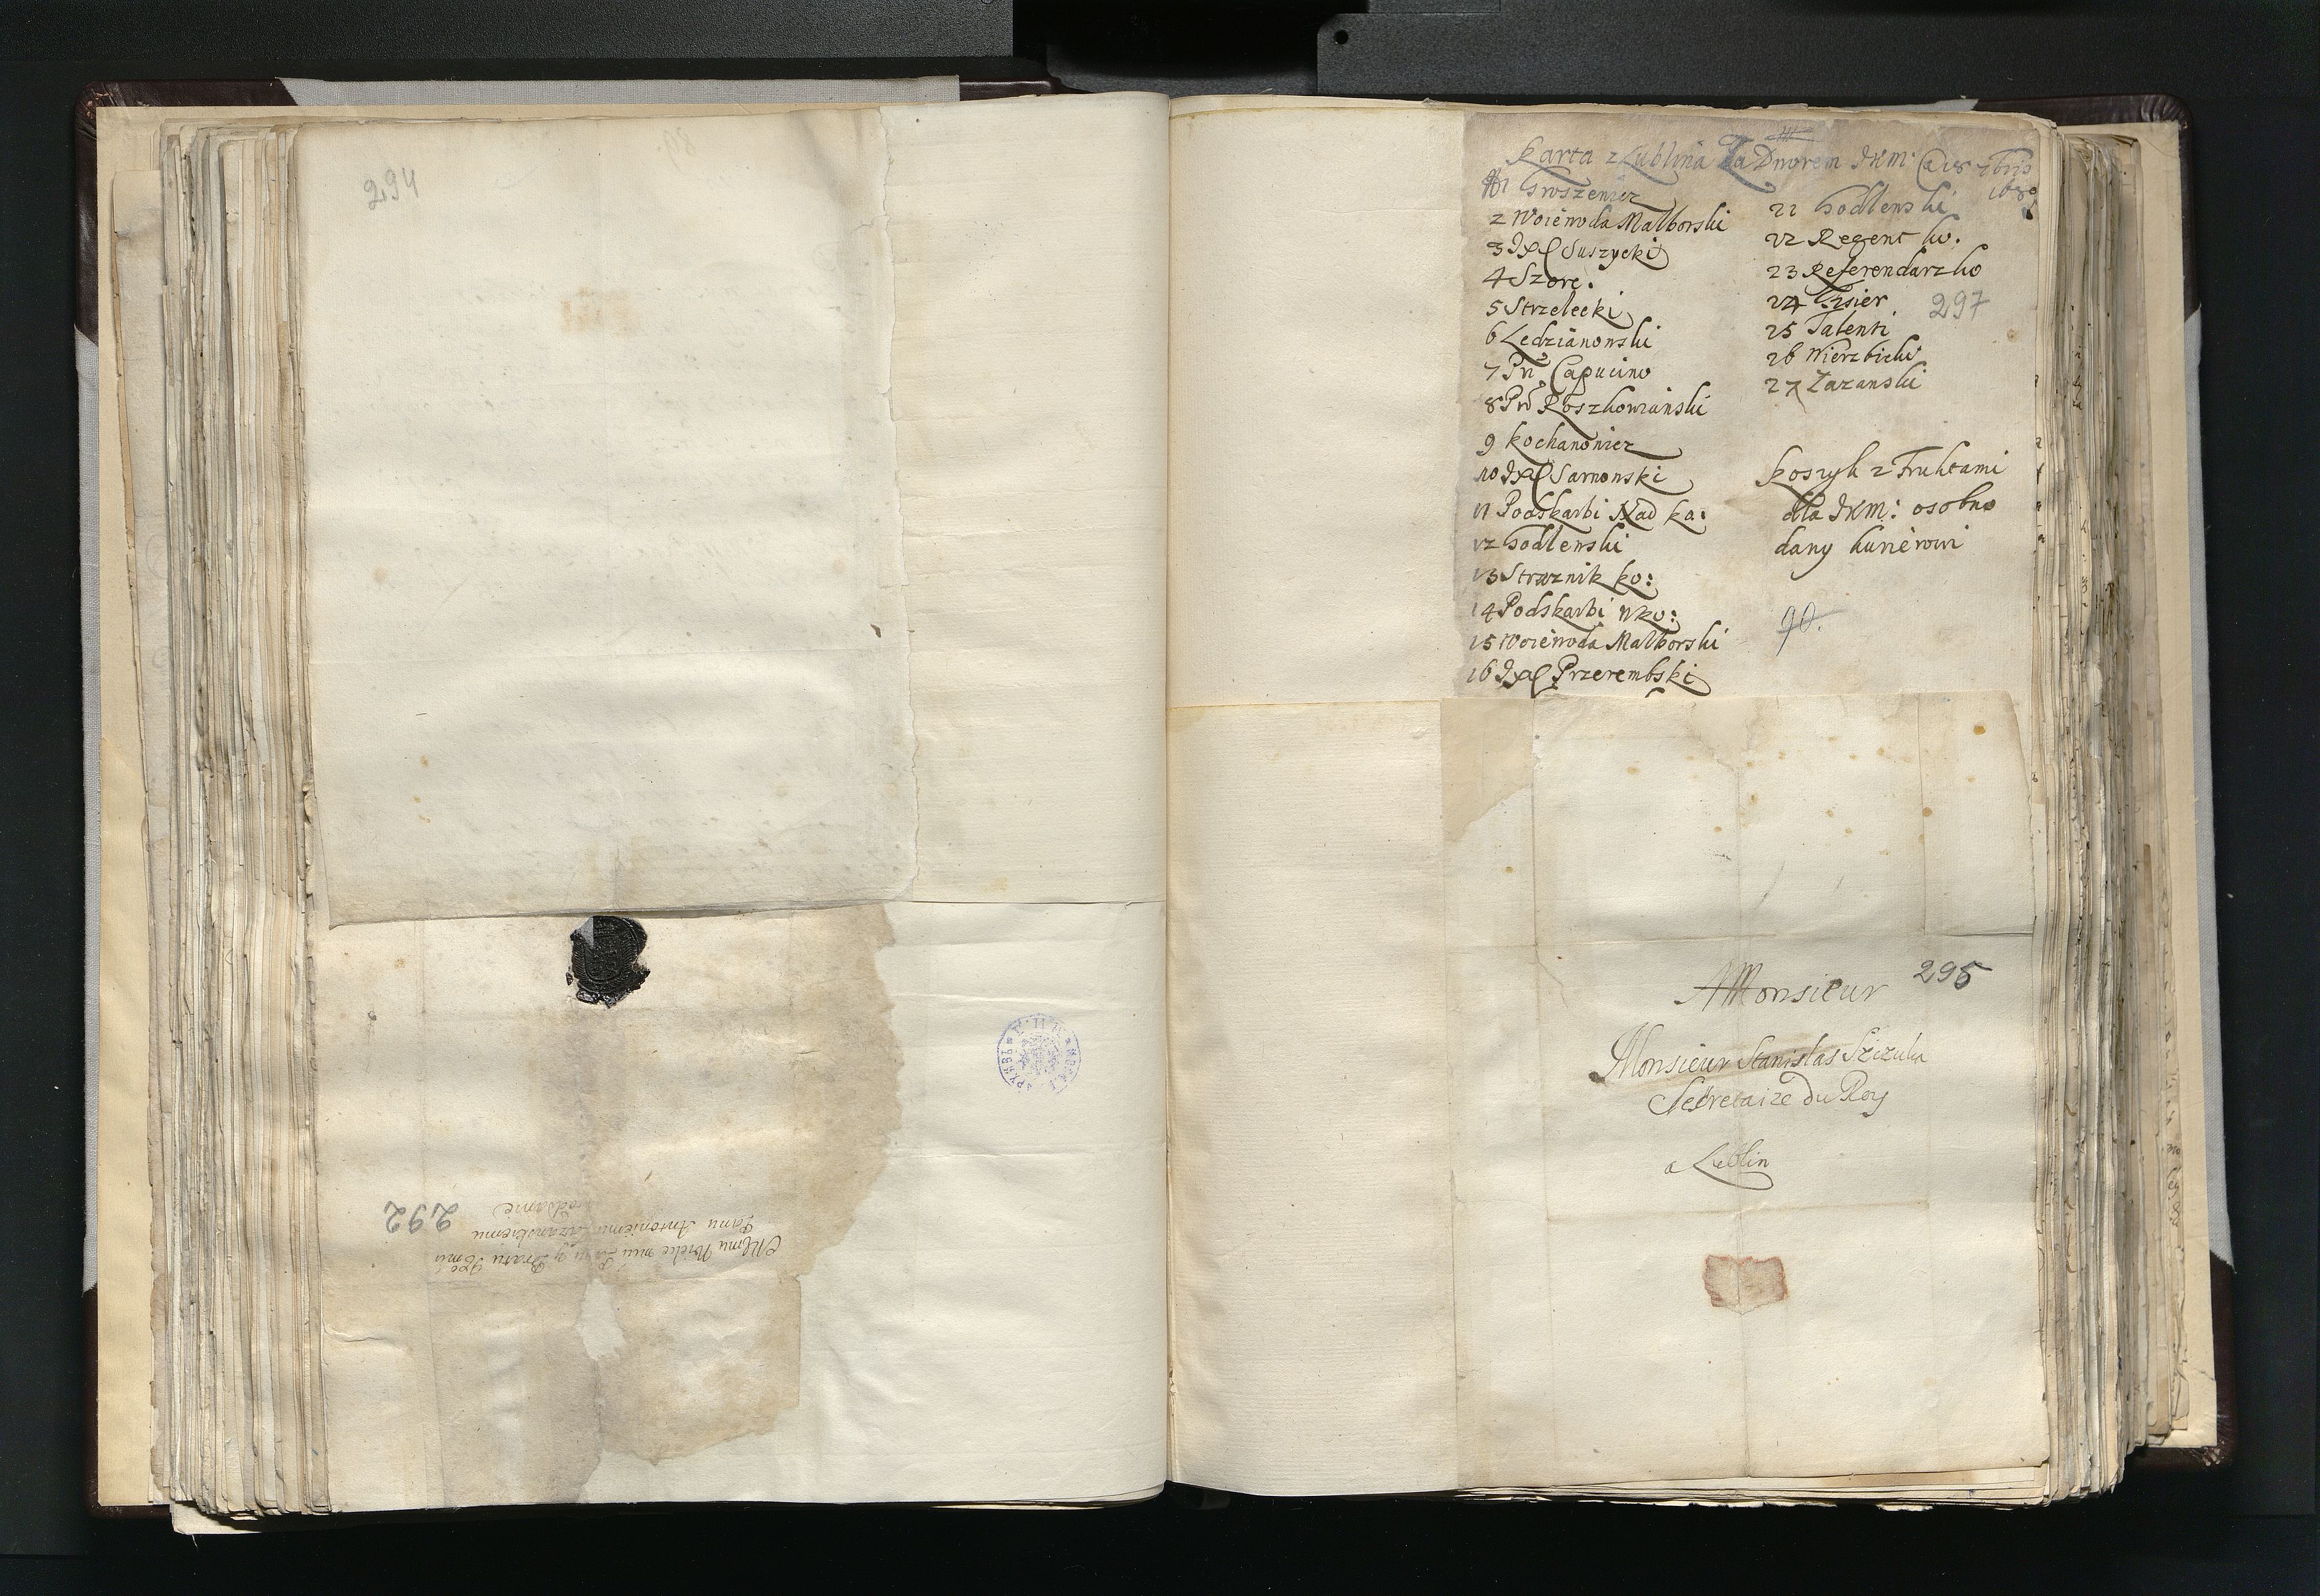 294
292
Panu Antoniemu Łazanskiemu
Karta z Lublina Za Dworem JKM:
1 Groszewicz
2 Woiewoda Malborski
3 JX Suszycki
4 Szorc.
5 Strzelecki
6 Ledzianowski
7 Pn Capucino
8 Pn Roszkowianski
9 Kochanowicz
10 JX Sarnowski
11 Podskarbi Nad Ko:
12 Godlewski
13 Straznik ko:
14 Podskarbi wko:
15 Woiewoda Malborski
16 JX Przerembski
21 Godlewski
22 Regent ko.
23 Referendarz ko
24
25 Talenti
26 Wierzbicki
27 Zazanski
297
Koszyk z Fruktami
dla JKM: osobno
dany kurierowi
90.
295
A Monsieur
Monsieur Stanislas Szczuka
Secretaire Du Roy
a Lublin